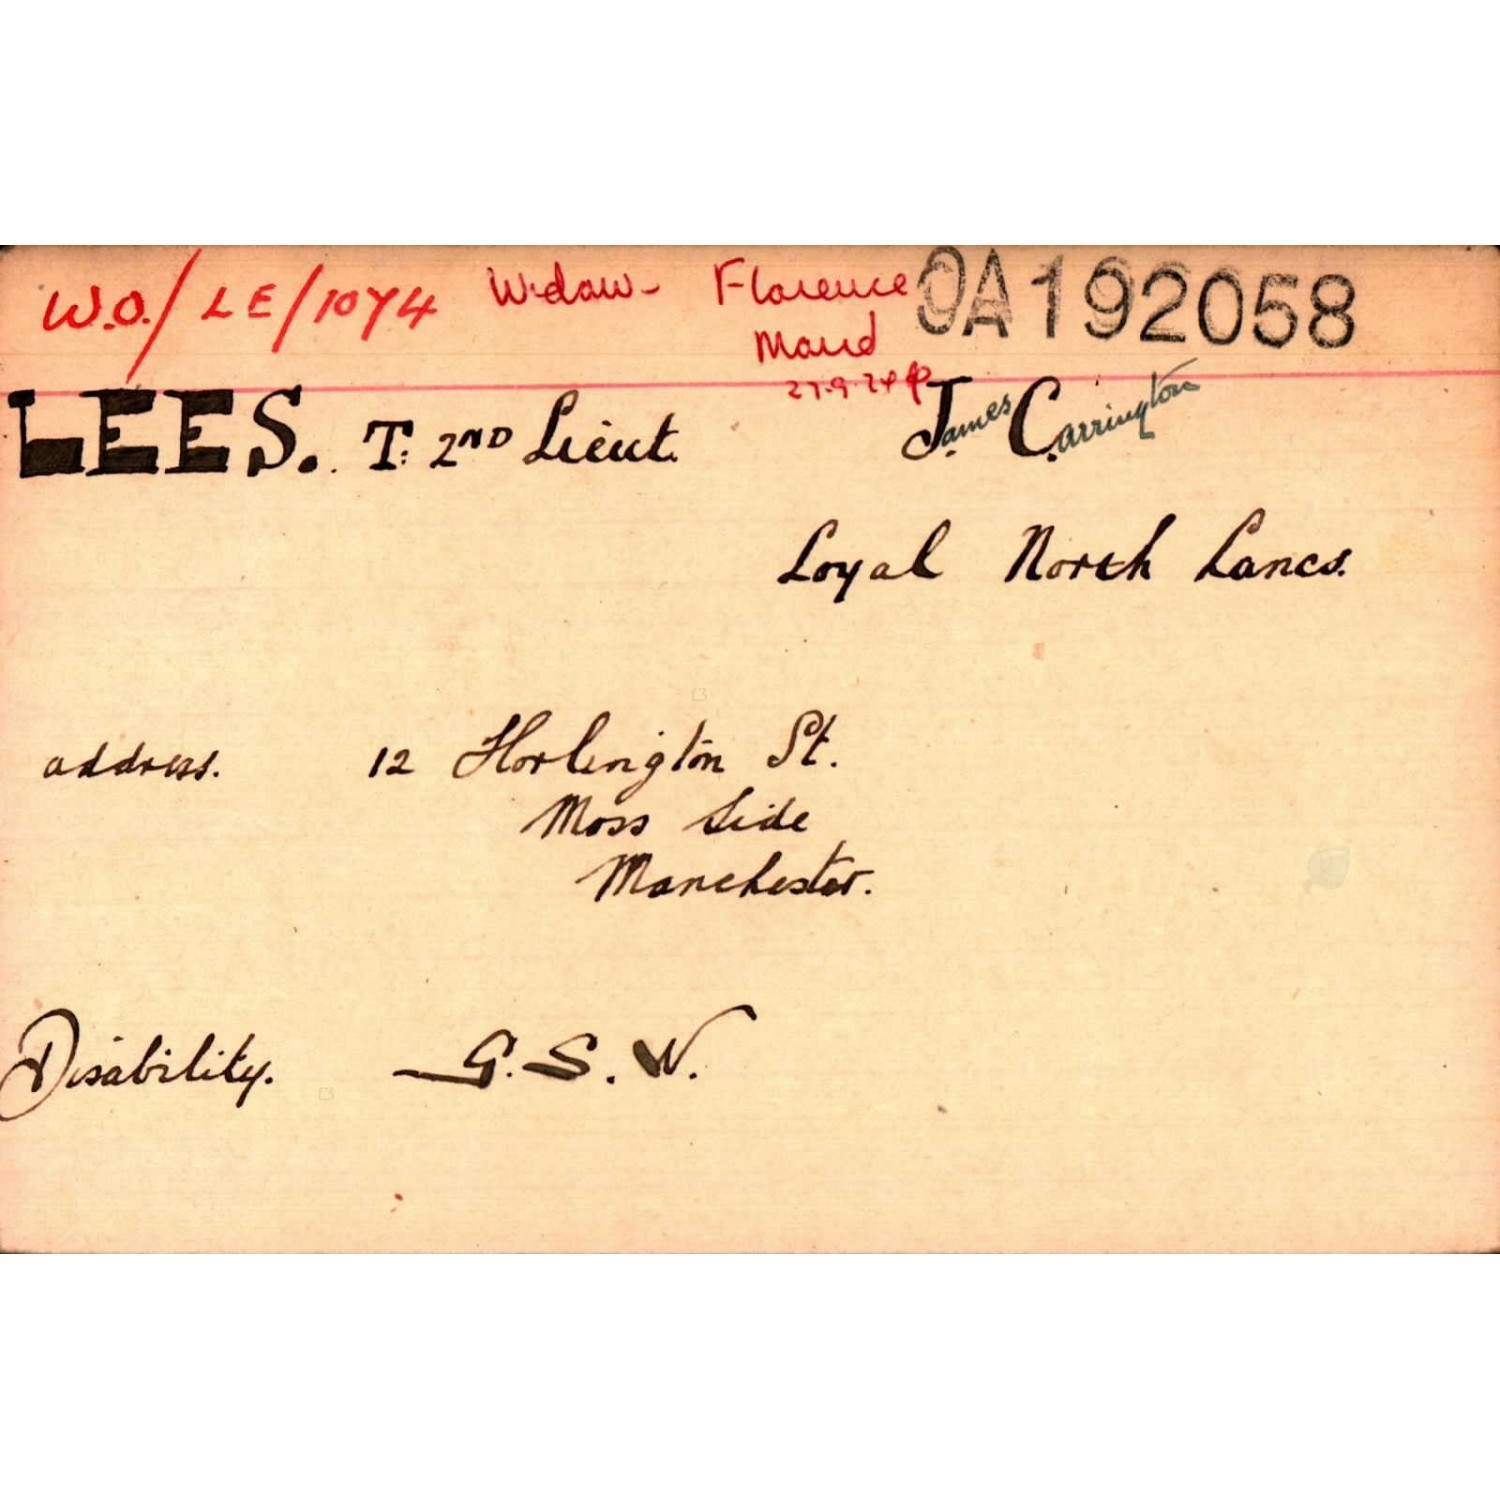 W.O./LE/1074 Widow - Florence OA192058
Maud
27.9.74
LEES. T. 2ND Lieut. James Carrington
Loyal North Lancs.
address. 12 Horlington St.
Moss Side
Manchester.
Disability. G.S.W.